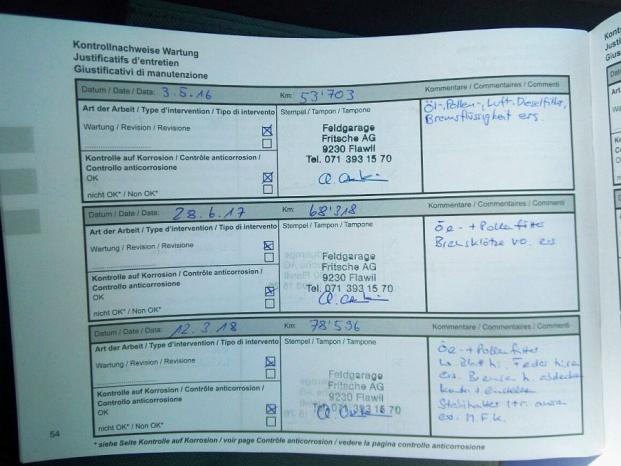 Kontrollnachweise Wartung
Justificatifs d'entretien
Giustificativi di manutenzione
Datum / Date / Data: 3.5.16 Km: 53'703 Kommentare / Commentaires / Commenti
Art der Arbeit / Type d'intervention / Tipo di intervento Stempel / Tampon / Tampone
Öl-, Pollen-, Luft-, Dieselfilter,
Bremsflüssigkeit ers.
Wartung / Revision / Revisione
Feldgarage
Fritsche AG
9230 Flawil
Tel. 071 393 15 70
Kontrolle auf Korrosion / Contrôle anticorrosion /
Controllo anticorrosione
OK
nicht OK* / Non OK*
Datum / Date / Data: 28.6.17 Km: 68'318 Kommentare / Commentaires / Commenti
Art der Arbeit / Type d'intervention / Tipo di intervento Stempel / Tampon / Tampone
+ Pollenfilter
Bremsklötze vo. ers
Wartung / Revision / Revisione
Feldgarage
Fritsche AG
9230 Flawil
Tel. 071 393 15 70
Kontrolle auf Korrosion / Contrôle anticorrosion /
Controllo anticorrosione
OK
nicht OK* / Non OK*
Datum / Date / Data: 12.3.18 Km: 78'596 Kommentare / Commentaires / Commenti
Art der Arbeit / Type d'intervention / Tipo di intervento Stempel / Tampon / Tampone
+ Pollenfilter
Wartung / Revision / Revisione
Feldgarage
Fritsche AG
9230 Flawil
Tel. 071 393 15 70
ers. Bremsen h.
Kontrolle auf Korrosion / Contrôle anticorrosion /
Controllo anticorrosione
OK
nicht OK* / Non OK*
M.F.K.
54
* siehe Seite Kontrolle auf Korrosion / voir page Contrôle anticorrosion / vedere la pagina controllo anticorrosione